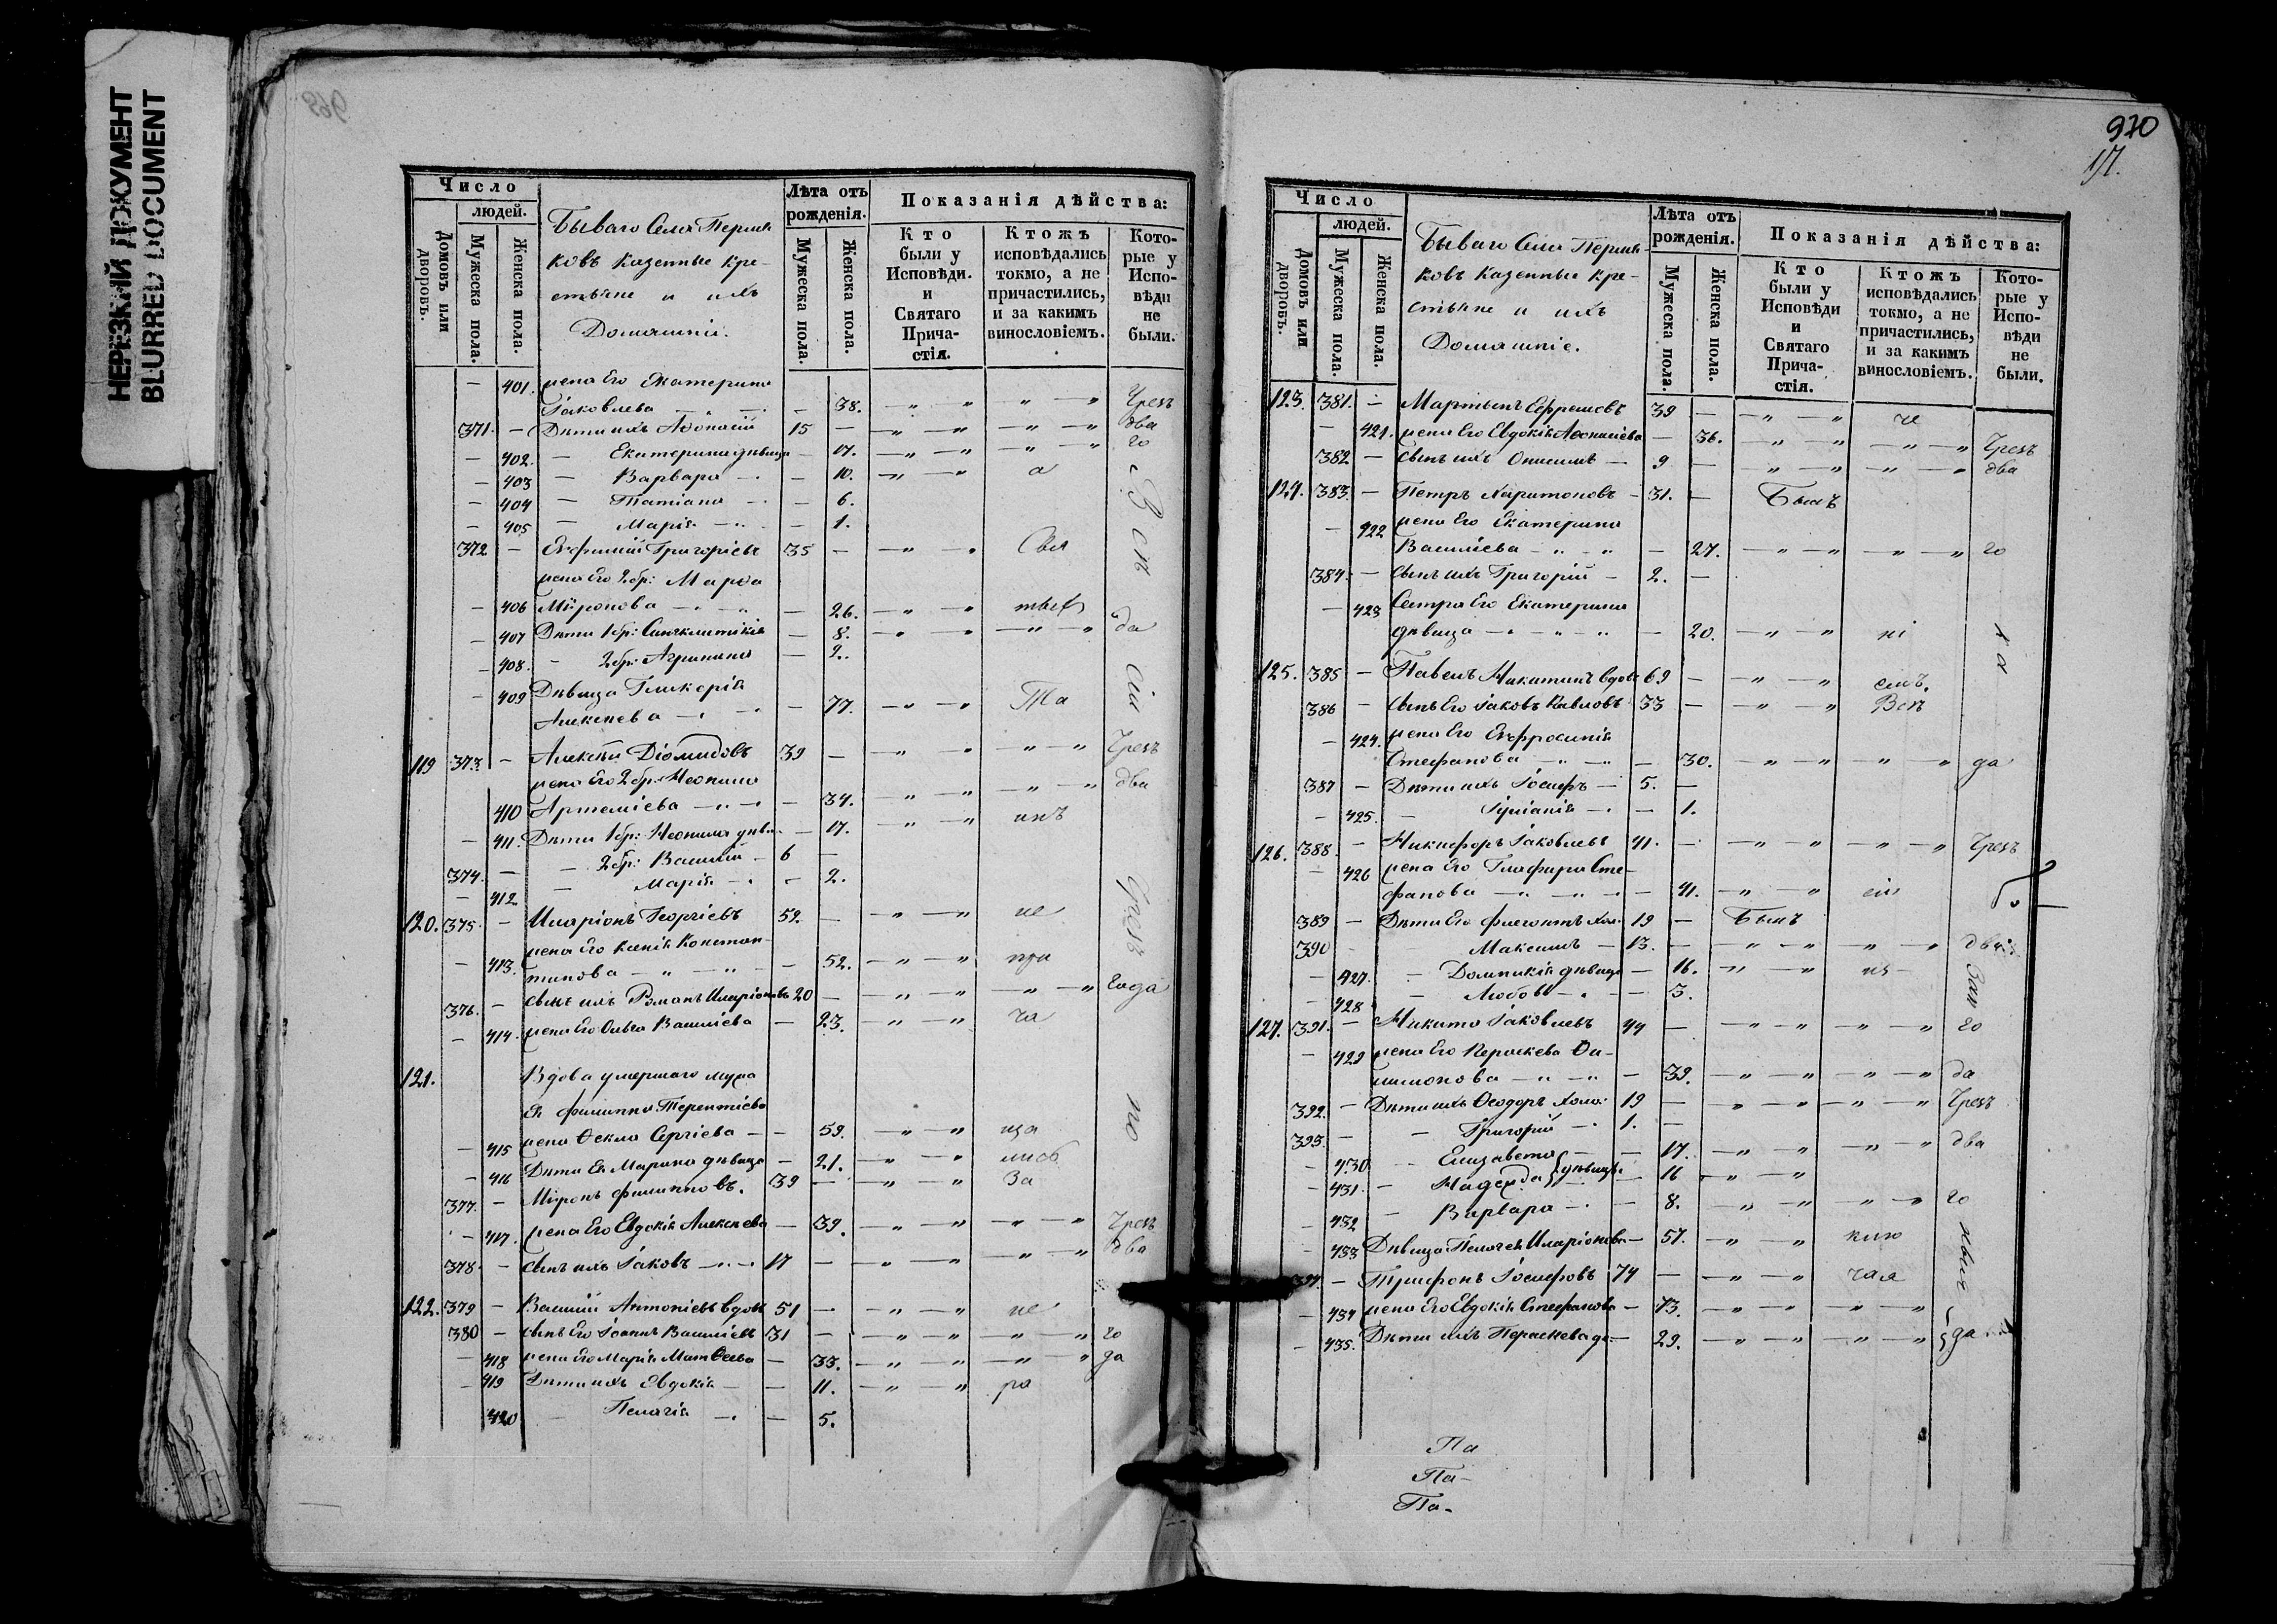 НЕРЕЗКИЙ ДОКУМЕНТ
BLURRED DOCUMENT
968
Число
людей.
Домовъ или дворовъ.
Мужеска пола.
Женска пола.
Бываго Села
ковъ Казенные Кре-
стьяне и ихъ
Домашніе.
Лѣта отъ рожденія.
Мужеска пола.
Женска пола.
Показанія дѣйства:
Кто были у Исповѣди. и Святаго Прича- стія.
Ктожъ исповѣдались токмо, а не причастились, и за какимъ винословіемъ.
Кото- рые у Испо- вѣди не были.
— 401. жена Его Екатерина
Іаковлева — 38. Чрезъ
371. — Дѣти ихъ Афонасій 15 — два
— 402. — Екатерина дѣвица — 17. го
— 403 — Варвара — 10. а
— 404 — Татіана — 6.
— 405 — Марія — 1.
372. — Евфимій Григоріевъ 35 — Свя
жена Его 2 бр: Марѳа
— 406 Міронова — 26.
— 407 Дѣти 1 бр: Синклитикія — 8. да
— 408. — 2 бр: Агрипина — 2.
— 409 Дѣвица Гликерія
Алексѣева — 77. Та
119 373. — Алексѣй Діомидовъ 39 — Чрезъ
жена Его 2 бр: Неонила два
410 Артеміева — 34.
— 411. Дѣти 1 бр: Неонила дѣв. — 17. инъ
374. — — 2 бр: Василій — 6 —
— 412 — Марія — 2.
120. 375. — Иларіонъ Георгіевъ 52 — не
жена Его Ксенія Констан-
— 413. тинова — 52. при
376. — сынъ ихъ Романъ Иларіоновъ 20 — года
— 414. жена Его Ольга Васильева — 23. ча
121. Вдова умершаго мужа
Ея Филиппа Терентіева
— 415 жена Ѳекла Сергіева — 59. ща
— 416 Дѣти Ея Марина дѣвица — 21.
377. — Міронъ Филипповъ. 39 — За
— 417. жена Его Евдокія Алексѣева — 39. Чрезъ
378. — сынъ ихъ Іаковъ — 17 — два
122. 379 — Василій Антоніевъ вдовъ 51 — не
380 — сынъ Его Іоаннъ Васильевъ 31 — го
— 418 жена Его Марія Матѳеева — 33. да
— 419 Дѣти ихъ Евдокія — 11. ра
420 — Пелагія — 5.
970
17.
Число
людей.
Домовъ или дворовъ.
Мужеска пола.
Женска пола.
Бываго Села
ковъ Казенные Кре-
стьяне и ихъ
Домашніе.
Лѣта отъ рожденія.
Мужеска пола.
Женска пола.
Показанія дѣйства:
Кто были у Исповѣди и Святаго Прича- стія.
Ктожъ исповѣдались токмо, а не причастились, и за какимъ винословіемъ.
Кото- рые у Испо- вѣди не были.
123. 381. — Мартынъ Ефремовъ 39 —
— 421. жена Его Евдокія Аѳонасіева — 36. Чрезъ
382 — сынъ ихъ Онисимъ — 9 — два
124. 383. — Петръ Харитоновъ — 31. — Былъ
— 422 жена Его Екатерина
Васильева — 27. го
384. — сынъ ихъ Григорій — 2. —
— 423 Сестра Его Екатерина
дѣвица — 20. ні
125. 385 — Павелъ Никитинъ вдовъ 69 — емъ.
386 — сынъ Его Іаковъ Павловъ 33 — Всѣ
— 424. жена Его Евфросинія
Стефанова — 30. да
387 — Дѣти ихъ Іосифъ — 5. —
— 425. — Іуліанія — 1.
126. 388. — Никифоръ Іаковлевъ 41. — Чрезъ
— 426 жена Его Глафира Сте-
фанова — 41.
389 — Дѣти Его Флегонтъ хол. 19 — Былъ
390 — Максимъ — 13. — два
— 427. — Домникія дѣвица — 16.
— 428 — Любовь — 3.
127. 391. — Никита Іаковлевъ 44 — го
— 429 жена Его Параскева Фи-
лимонова — 39. да
392. — Дѣти ихъ Ѳеодоръ холо: 19 — Чрезъ
393. — — Григорій — 1. —
— 430 — Елизавета — 17. два
— 431. — Надежда дѣвицы — 16
— 432 — Варвара — 8. го
— 433 Дѣвица Пелагея Иларіонова — 57.
394. — Трифонъ Іосифовъ 74 — чая
— 434 жена Его Евдокія Стефанова — 73.
— 435. Дѣти ихъ Параскева дѣ. — 29. да
Па
Па-
Па-